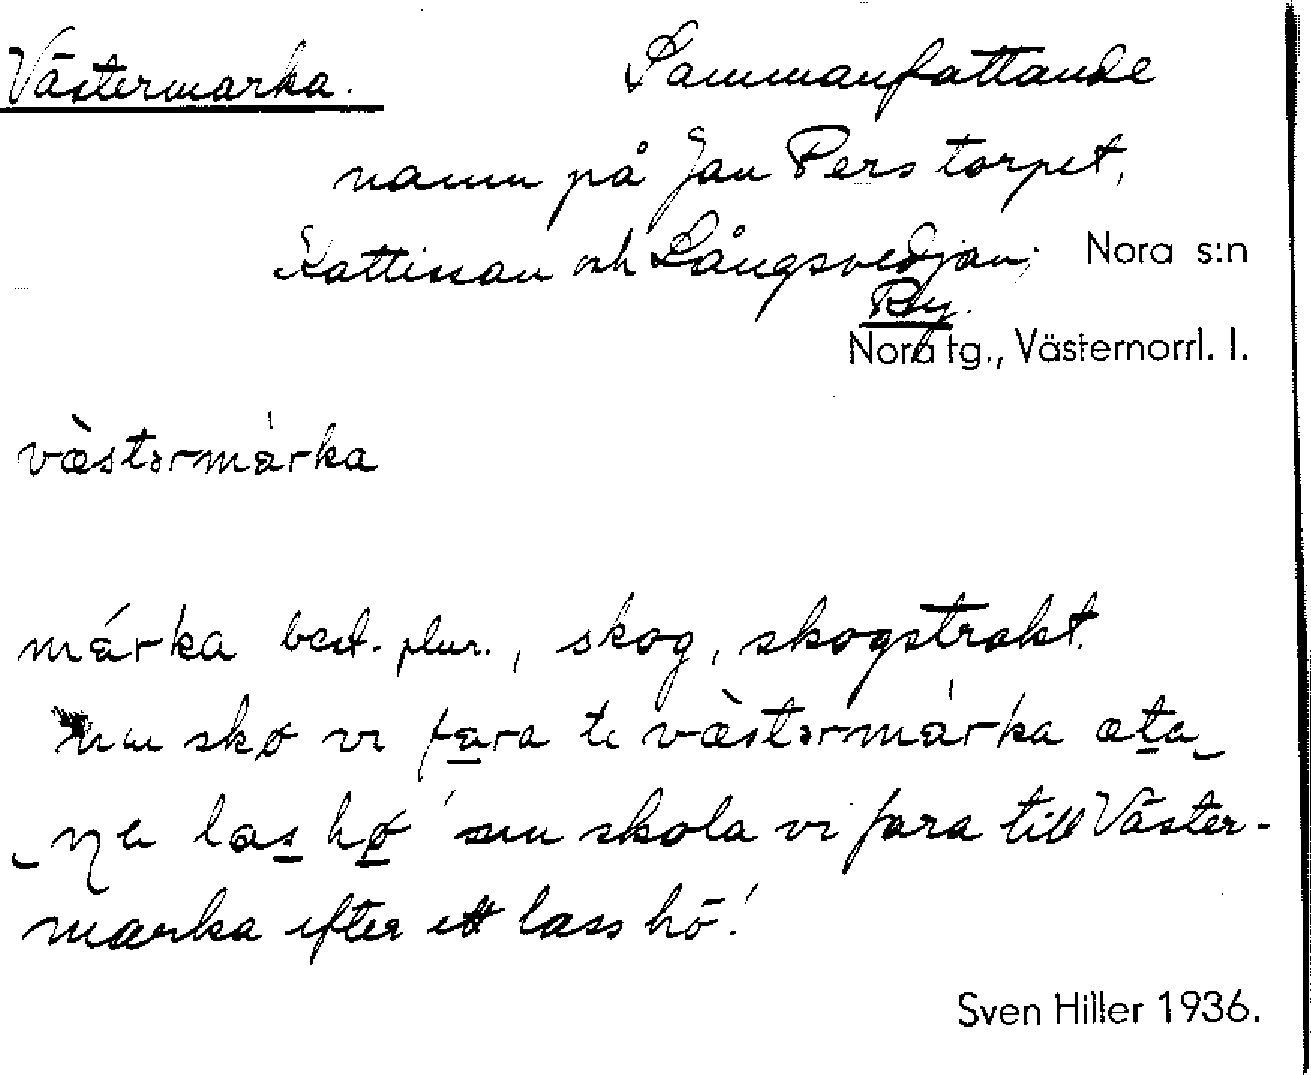 Västermarka. Sammanfattande
namn på Jan Pers torpet,
Kattissan och Långsvedjan; Nora s:n
By.
Nora tg., Västernorrl. l.
vàstərmárka
márka best. plur., skog, skogstrakt.
nu skø vi fara te vàstərmárka æta
ŋu las hø 'nu skola vi fara till Väster-
marka efter ett lass hö.'
Sven Hiller 1936.